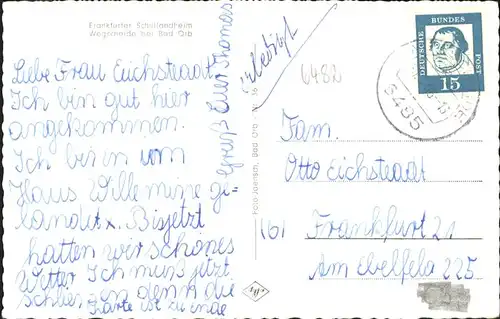 Frankfurter Schullandheim
Wegscheide bei Bad Orb
Liebe Frau Eichstaedt
Ich bin gut hier
angekommen.
Ich bin in vom
Haus Willemine ge-
landet. Bisjetzt
hatten wir schönes
Wetter Ich muß jetzt
schließen denn die
Karte ist zu ende
Gruß Euer Thomas
erledigt
6482
DEUTSCHE BUNDES POST
15
6485
Foto-Jaensch, Bad Orb
Fam.
Otto Eichstaedt
(6) Frankfurt 21
Am Ebelfeld 225